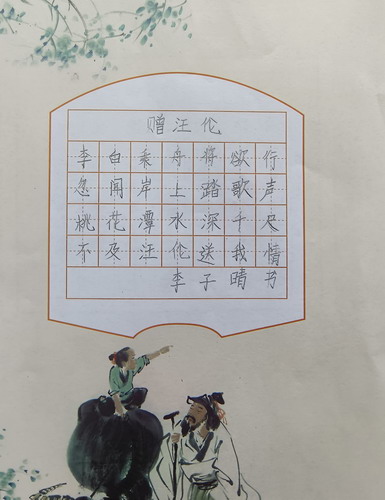 赠汪伦
李白乘舟将欲行
忽闻岸上踏歌声
桃花潭水深千尺
不及汪伦送我情
李子晴书